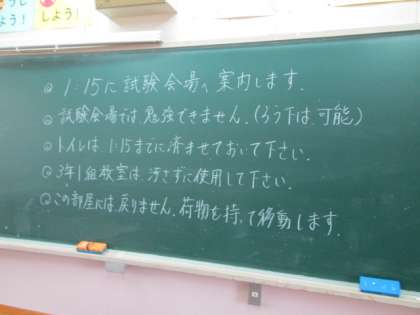 しよう!
しよう!
◎ 1:15に試験会場へ案内します.
◎ 試験会場では勉強できません.(ろう下は可能)
◎ トイレは 1:15までに済ませておいて下さい.
◎ 3年1組教室は、汚さずに使用して下さい.
◎ この部屋には戻りません.荷物を持って移動します.